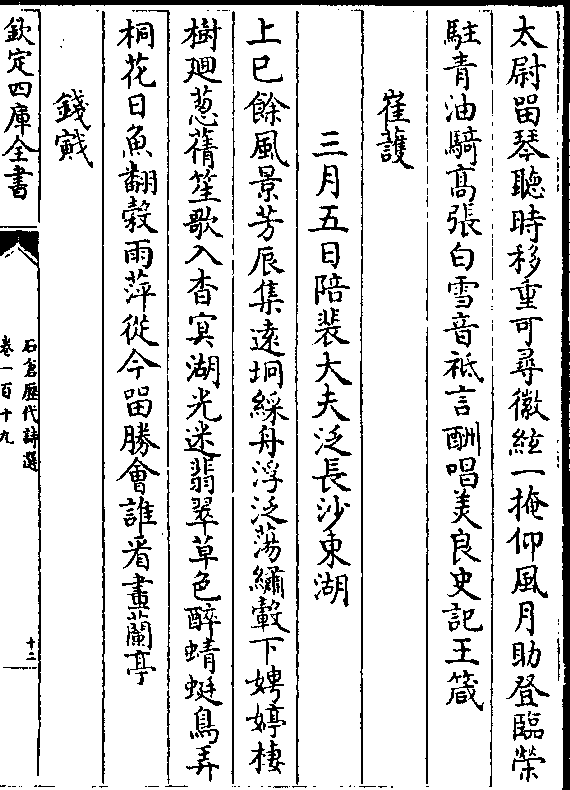 太尉畱琴聽時移重可尋徽絃一掩仰風月助登臨榮
駐青油騎髙張白雪音祗言酬唱美良史記王箴
崔護
三月五日陪裴大夫泛長沙東湖
上巳餘風景芳辰集遠坰綵舟浮泛蕩繡轂下娉婷棲
樹迴葱蒨笙歌入杳冥湖光迷翡翠草色醉蜻蜓鳥弄
桐花日魚翻榖雨萍從今畱勝會誰看畫蘭亭
錢戭
欽定四庫全書
石倉歴代詩選
卷一百十九
十二